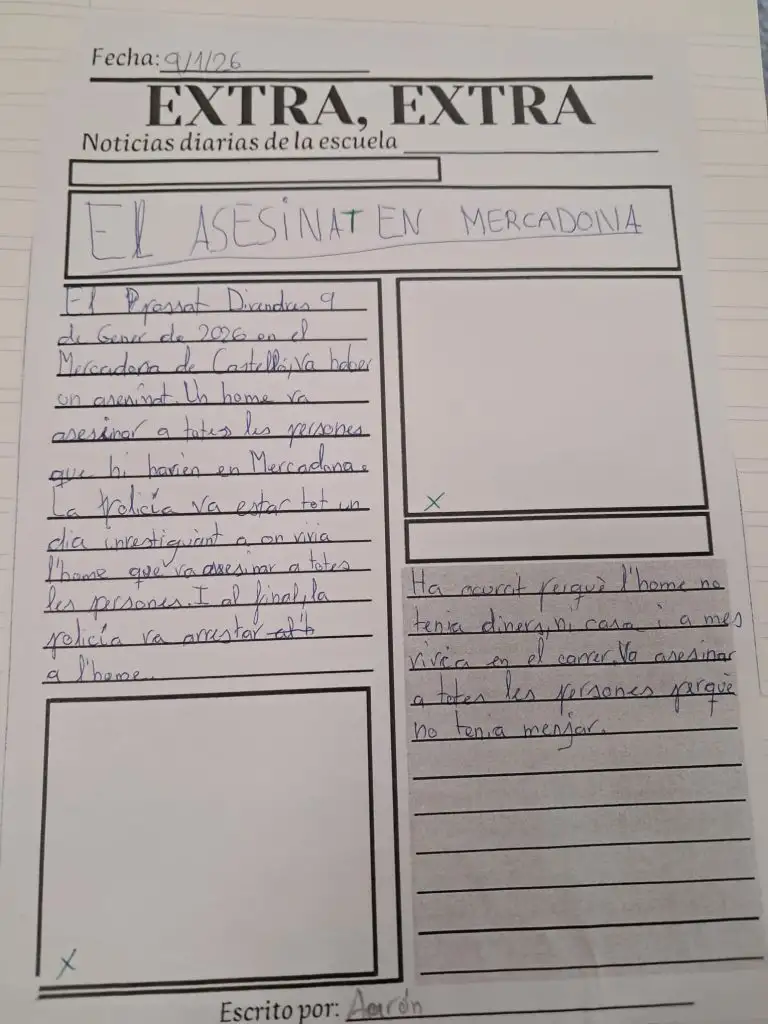 Fecha: 9/1/26
EXTRA, EXTRA
Noticias diarias de la escuela
El ASESiNAT EN MERCADONA
El Passat Divendres 9
de Gener de 2026 en el
Mercadona de Castelló, va haber
un asesinat. Un home va
asesinar a totes les persones
que hi havien en Mercadona.
La policía va estar tot un
dia investiguant a on vivia
l'home que va asesinar a totes
les persones. I al final, la
policía va arrestar
a l'home.
X
Ha ocurrit perquè l'home no
tenia diners, ni casa i a mes
vivia en el carrer. Va asesinar
a totes les persones perquè
no tenia menjar.
X
Escrito por: Aarón